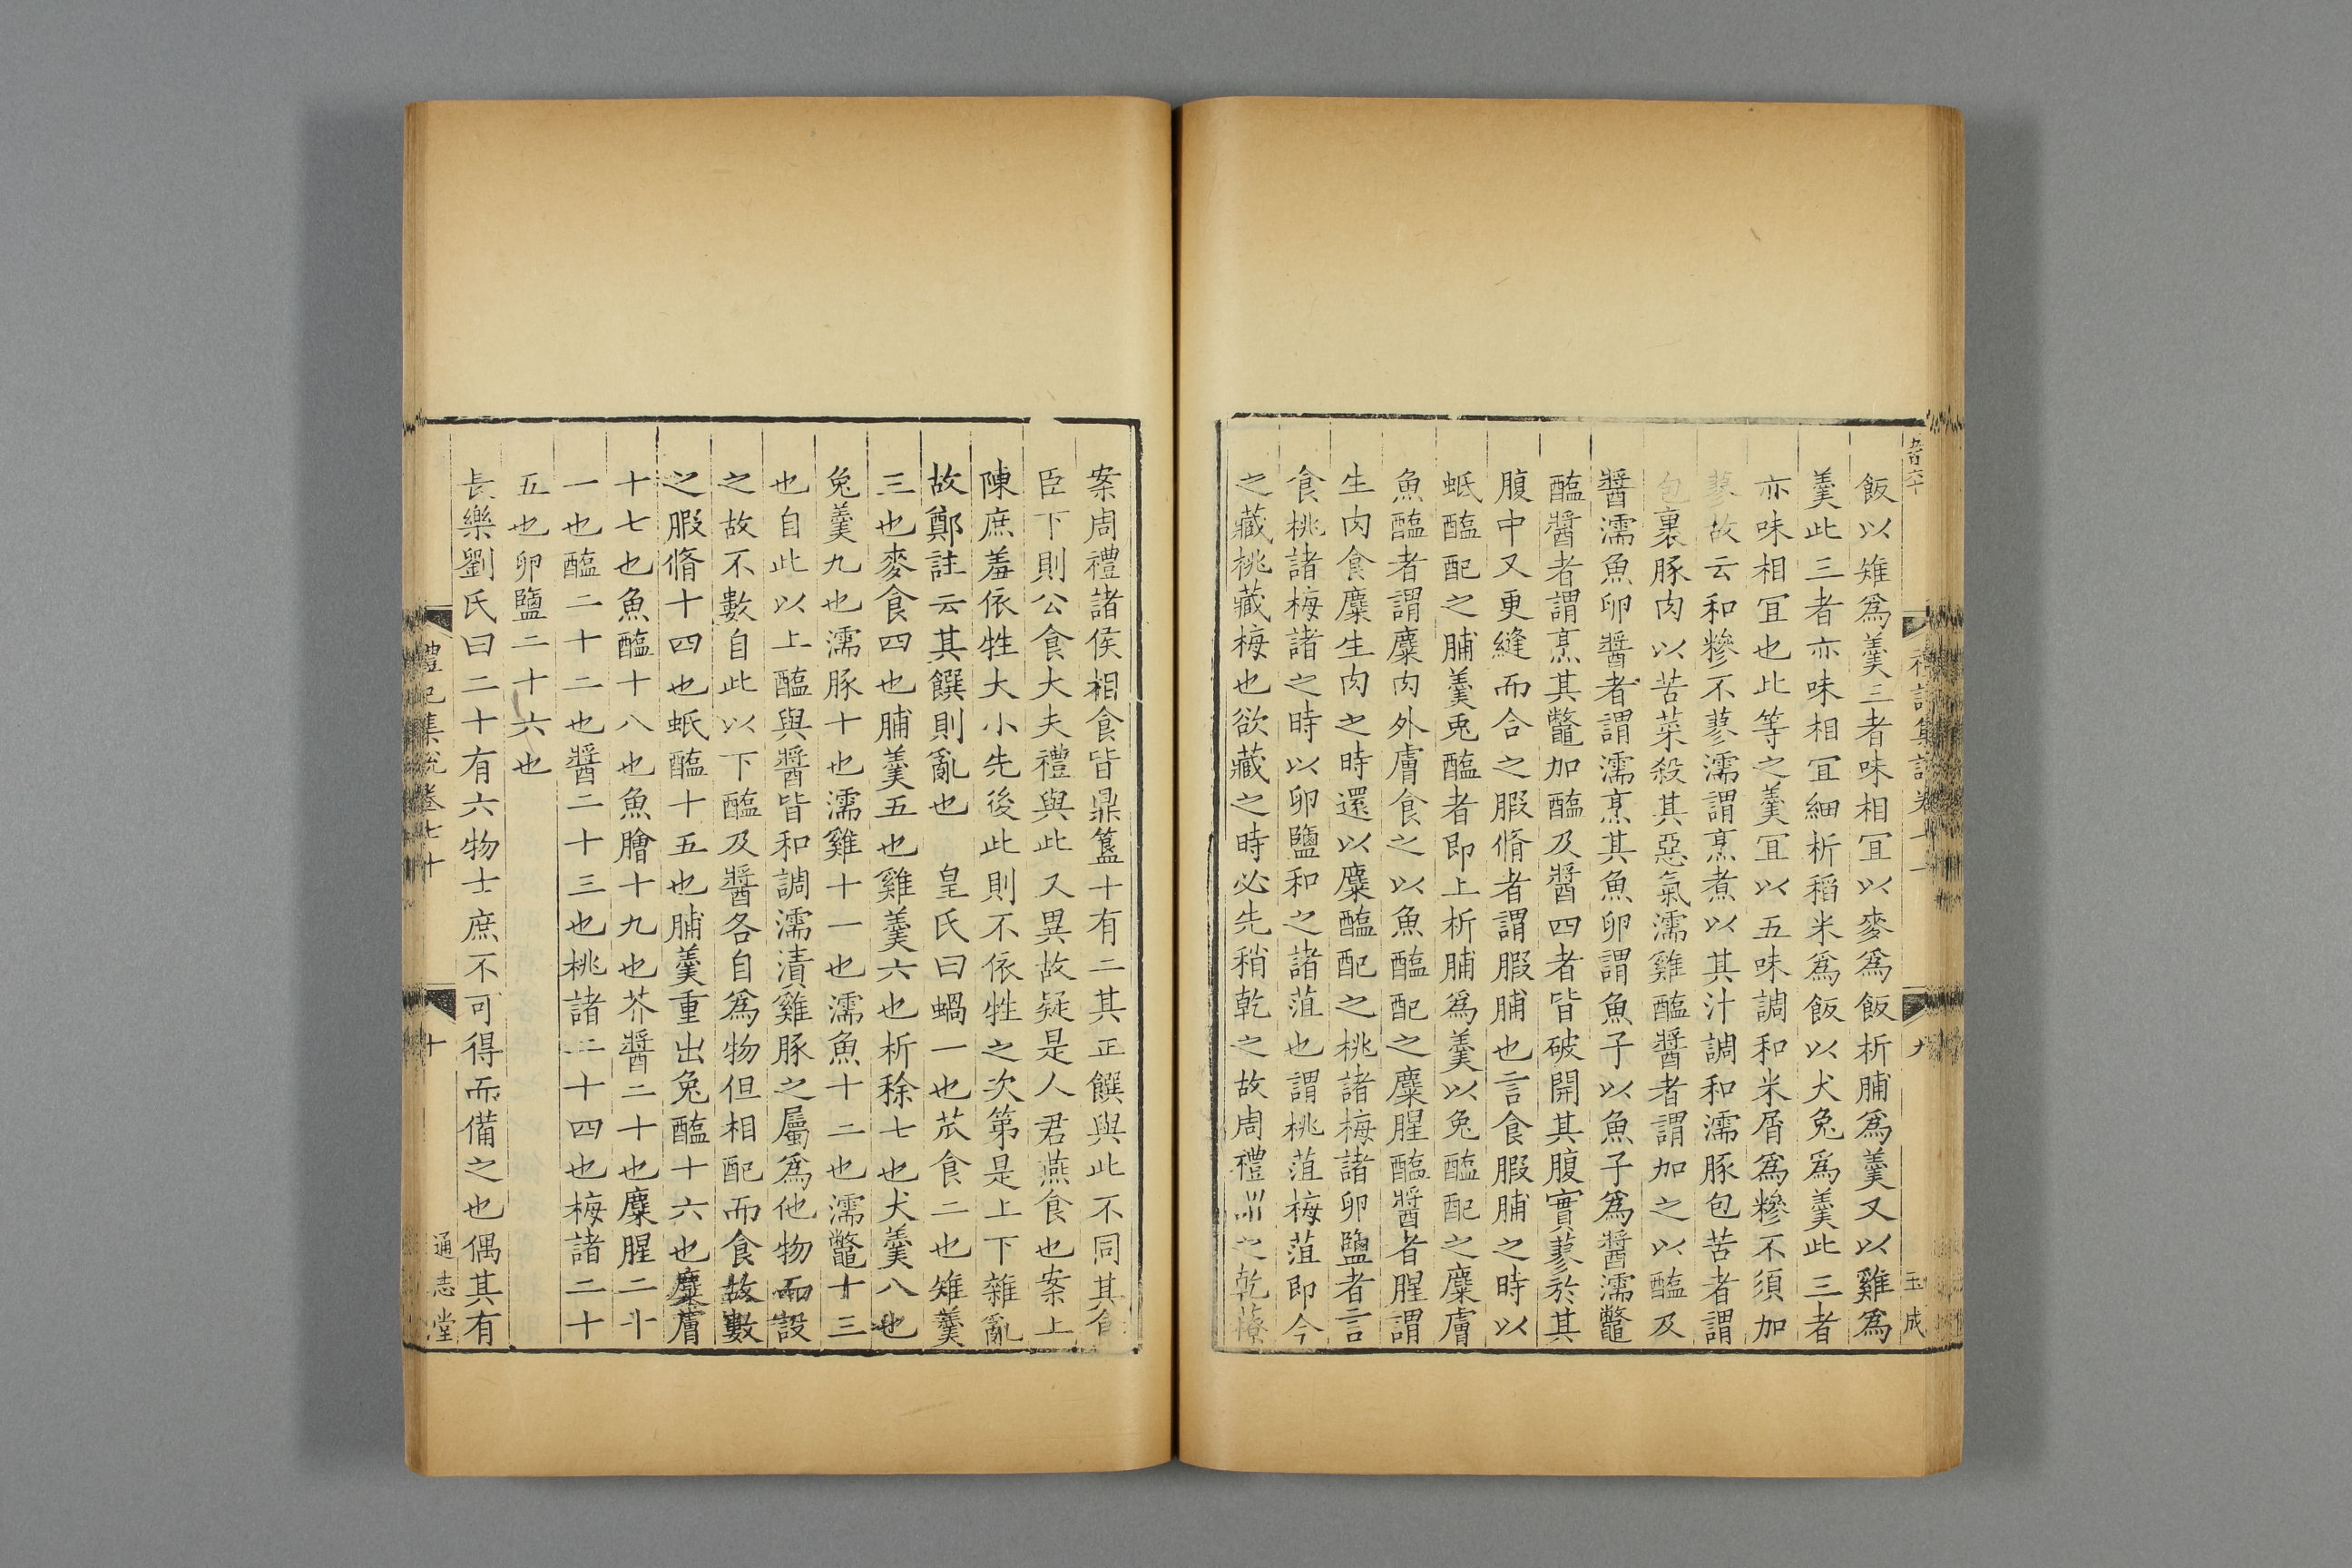 飯以雉爲羹三者味相冝以麥爲飯析脯爲羹又以雞爲
羹此三者亦味相冝細析稻米爲飯以犬兔爲羹此三者
亦味相冝也此等之羹冝以五味調和米屑爲糝不須加
蓼故云和糝不蓼濡謂烹煮以其汁調和濡豚包苦者謂
包裹豚肉以苦菜殺其惡氣濡雞醢醬者謂加之以醢及
醬濡魚卵醬者謂濡烹其魚卵謂魚子以魚子爲醬濡鼈
醢醬者謂烹其鼈加醢及醬四者皆破開其腹實蓼於其
腹中又更縫而合之腶脩者謂腶脯也言食腶脯之時以
蚳醢配之脯羹兎醢者即上析脯爲羹以兔醢配之麋膚
魚醢者謂麋肉外膚食之以魚醢配之麋腥醢醬者腥謂
生肉食麋生肉之時還以麋醢配之桃諸梅諸卵鹽者言
食桃諸梅諸之時以卵鹽和之諸菹也謂桃菹梅菹即今
之藏桃藏梅也欲藏之時必先稍乾之故周禮謂之乾䕩
九
玉成
案周禮諸侯相食皆鼎簋十有二其正饌與此不同其食
臣下則公食大夫禮與此又異故疑是人君燕食也案上
陳庶羞依牲大小先後此則不依牲之次第是上下雜亂
故鄭註云其饌則亂也　皇氏曰蝸一也苽食二也雉羹
三也麥食四也脯羹五也雞羹六也析稌七也犬羹八也
兔羹九也濡豚十也濡雞十一也濡魚十二也濡鼈十三
也自此以上醢與醬皆和調濡漬雞豚之屬爲他物而設
之故不數自此以下醢及醬各自爲物但相配而食故數
之腶脩十四也蚳醢十五也脯羹重出兔醢十六也麋膚
十七也魚醢十八也魚膾十九也芥醬二十也麋腥二十
一也醢二十二也醬二十三也桃諸二十四也梅諸二十
五也卵鹽二十六也
長樂劉氏曰二十有六物士庶不可得而備之也偶其有
禮記集說卷七十
十
通志堂